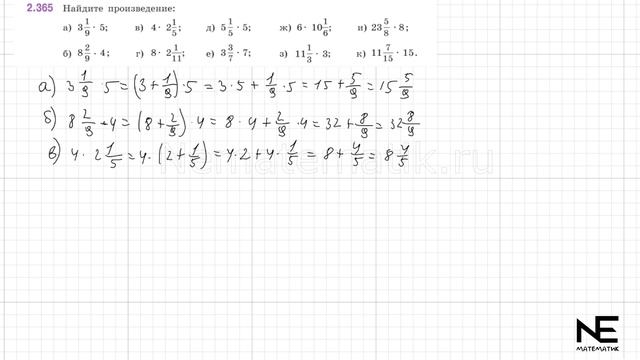 2.365 Найдите произведение:
а) 3 1/9 · 5; в) 4 · 2 1/5; д) 5 1/5 · 5; ж) 6 · 10 1/6; и) 23 5/8 · 8;
б) 8 2/9 · 4; г) 8 · 2 1/11; е) 3 3/7 · 7; з) 11 1/3 · 3; к) 11 7/15 · 15.
а) 3 1/9 · 5 = (3 + 1/9) · 5 = 3 · 5 + 1/9 · 5 = 15 + 5/9 = 15 5/9
б) 8 2/9 · 4 = (8 + 2/9) · 4 = 8 · 4 + 2/9 · 4 = 32 + 8/9 = 32 8/9
в) 4 · 2 1/5 = 4 · (2 + 1/5) = 4 · 2 + 4 · 1/5 = 8 + 4/5 = 8 4/5
NE
МАТЕМАТИК